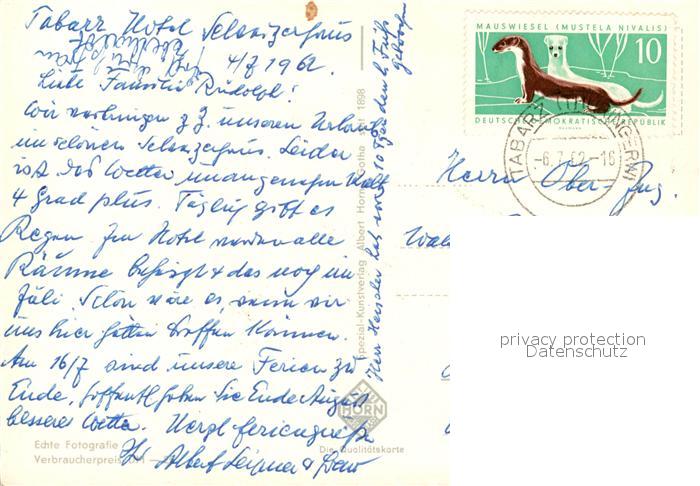 Tabarz Hotel Schweizerhaus
4/7 1962.
Liebe Familie Rudolph!
Wir verbringen z.Z. unseren Urlaub
im schönen Schweizerhaus. Leider
ist das Wetter unangenehm kalt
4 Grad plus. Täglich gibt es
Regen. Im Hotel werden alle
Räume beheizt & das noch im
Juli. Schön wäre es, wenn wir
uns hier hätten treffen können.
Am 16/7 sind unsere Ferien zu
Ende, hoffentl. haben Sie Ende August
besseres Wetter. Herzl. Feriengrüße
Ihr Albert
Echte Fotografie
Verbraucherpreis
Die Qualitätskarte
HORN
Spezial-Kunstverlag Albert Horn Gotha 1898
Herr hat noch 10
MAUSWIESEL (MUSTELA NIVALIS)
10
DEUTSCHE DEMOKRATISCHE REPUBLIK
TABARZ (THÜRINGERW)
-6.7.62-16
Herrn Ober-Ing.
privacy protection
Datenschutz